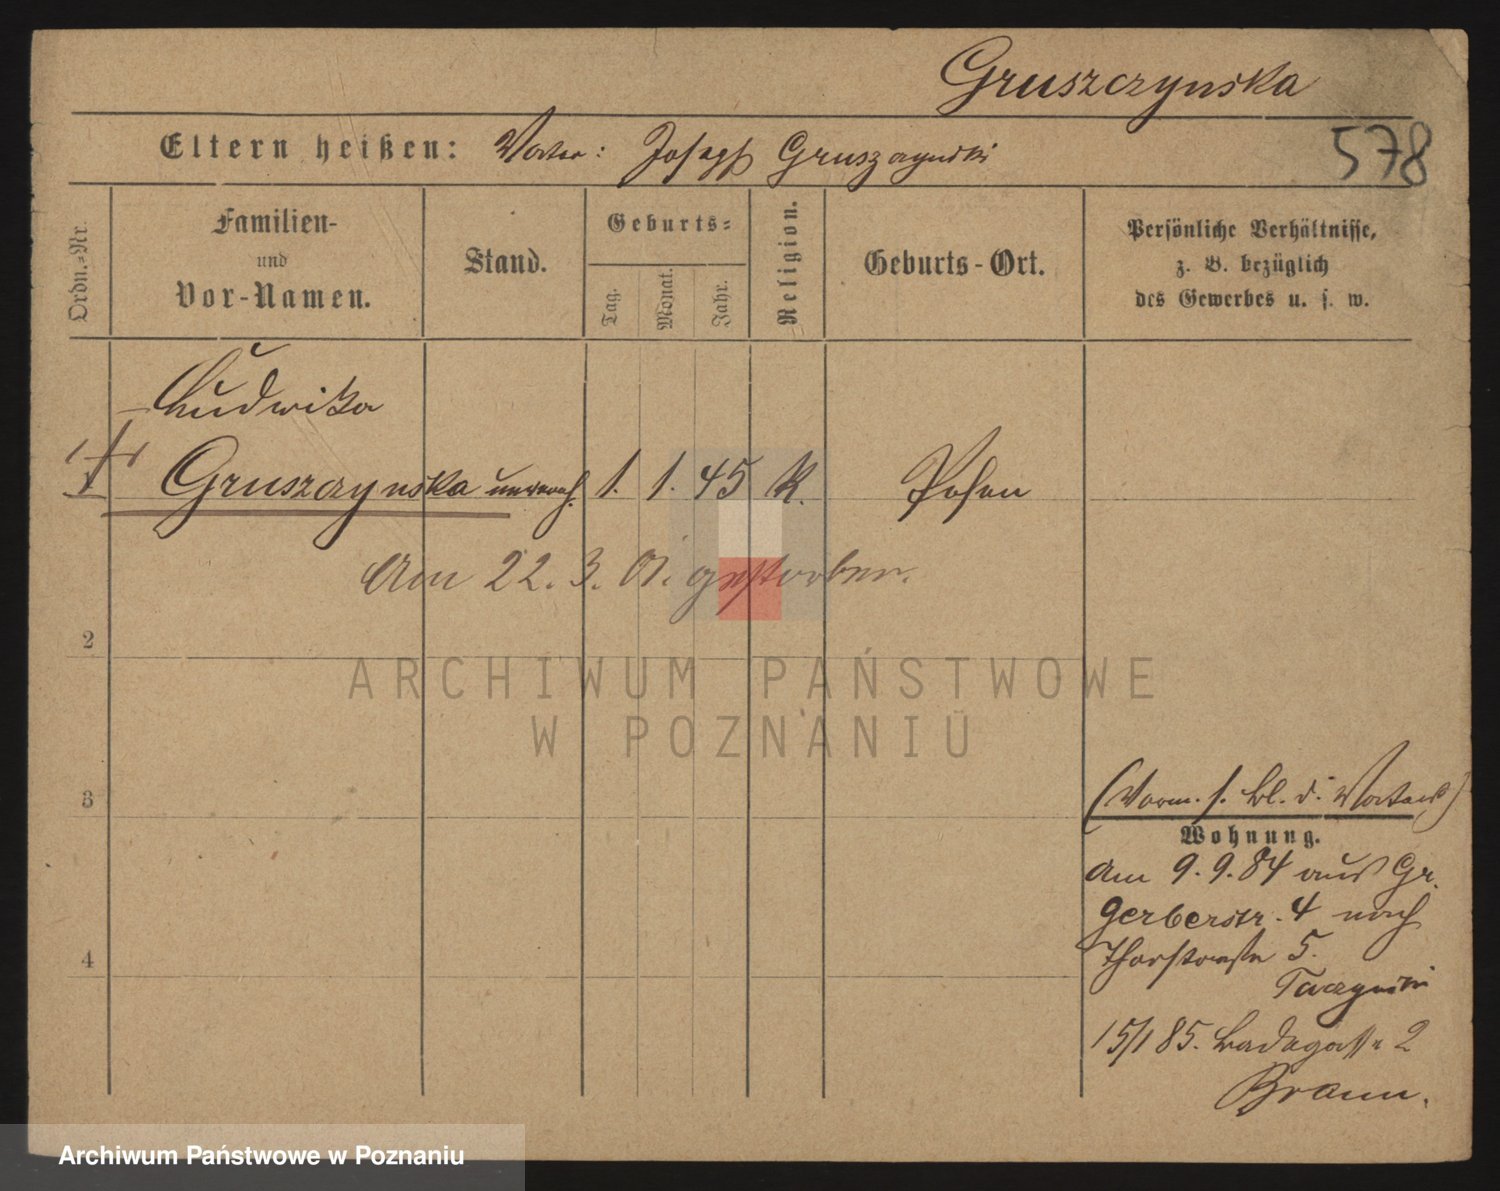 Gruszczynska
578
Eltern heißen: Vater: Joseph Gruszczynski
Ordn.=Nr.
Familien-
und
Vor-Namen.
Stand.
Geburts=
Tag.
Monat.
Jahr.
Religion.
Geburts-Ort.
Persönliche Verhältnisse,
z. B. bezüglich
des Gewerbes u. s. w.
Ludwika
1 Gruszczynska unvereh. 1. 1. 45 K. Posen
Am 22. 3. 01. gestorben.
2
ARCHIWUM PAŃSTWOWE
W POZNANIU
3
(Vorm. s. Bl. d. Vaters)
Wohnung.
Am 9. 9. 84 aus Gr.
Gerberstr. 4 nach
Thorstraße 5.
4
Taczynski
15/1 85. Badegasse 2
Braun.
Archiwum Państwowe w Poznaniu